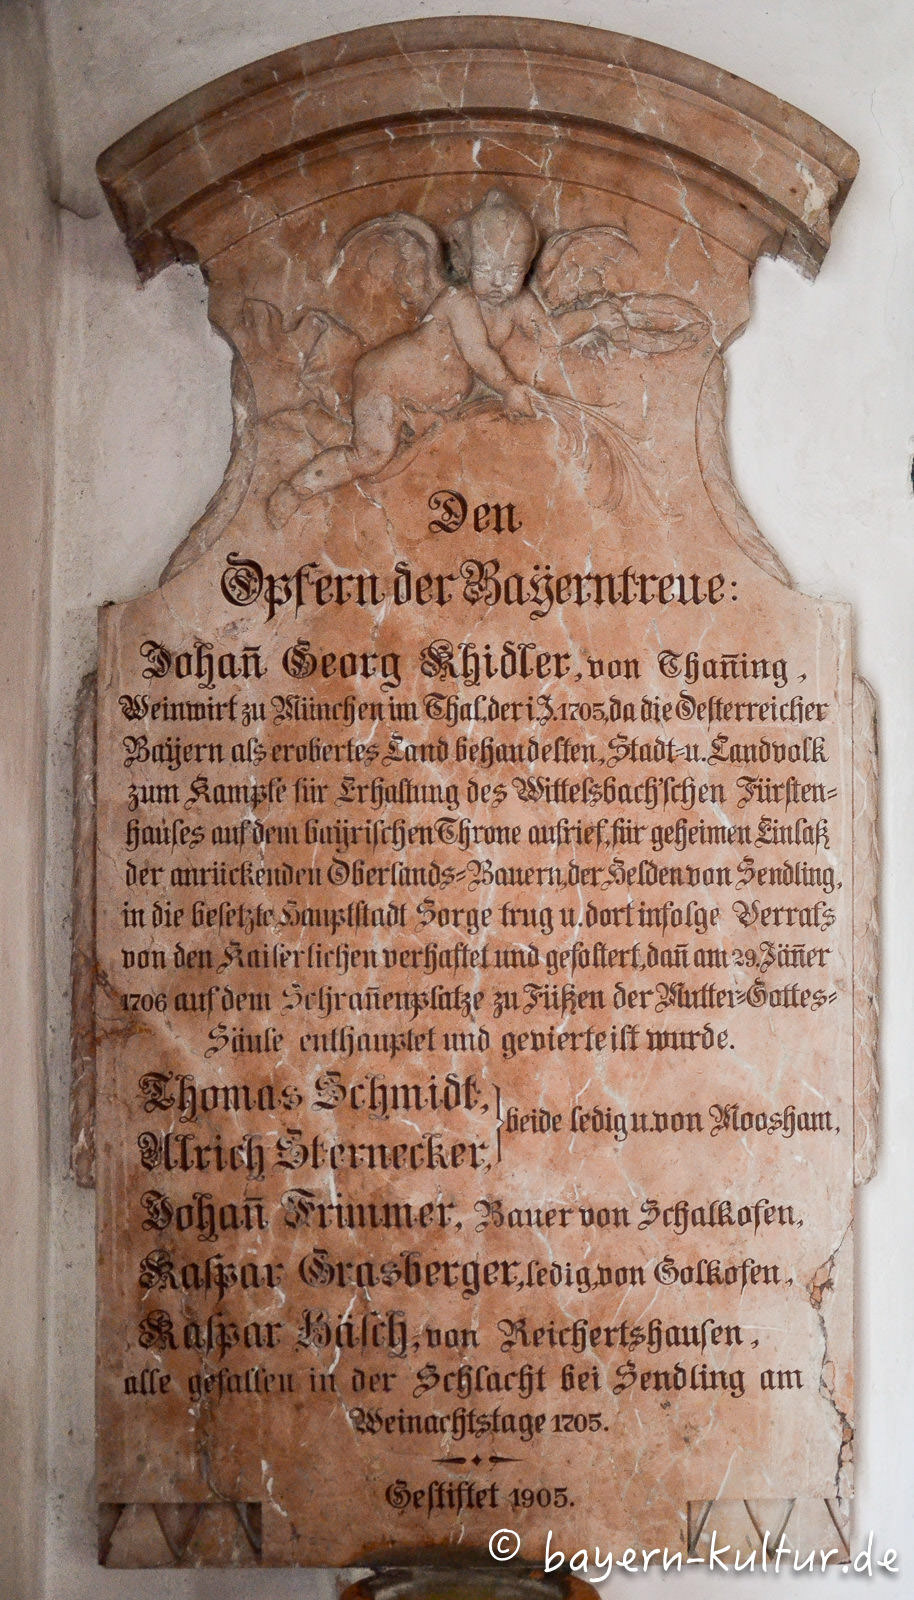 Den
Opfern der Baÿerntreue:
Johan̄ Georg Khidler, von Than̄ing,
Weinwirt zu München im Thal, der i. J. 1705, da die Oesterreicher
Baÿern als erobertes Land behandelten, Stadt- u. Landvolk
zum Kampfe für Erhaltung des Wittelsbach'schen Fürsten-
hauses auf dem baÿrischen Throne aufrief, für geheimen Einlaß
der anrückenden Oberlands-Bauern, der Helden von Sendling,
in die besetzte Hauptstadt Sorge trug u. dort infolge Verrats
von den Kaiserlichen verhaftet und gefoltert, dan̄ am 29. Jän̄er
1706 auf dem Schran̄enplatze zu Füßen der Mutter-Gottes-
Säule enthauptet und gevierteilt wurde.
Thomas Schmidt,
Ulrich Sternecker, } beide ledig u. von Moosham,
Johan̄ Frimmer, Bauer von Schalkofen,
Kaspar Grasberger, ledig, von Golkofen,
Kaspar Häsch, von Reichertshausen,
alle gefallen in der Schlacht bei Sendling am
Weinachtstage 1705.
Gestiftet 1905.
© bayern-kultur.de